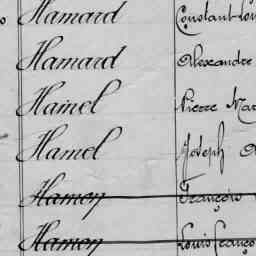 Hamard Constant
Hamard Alexandre
Hamel Pierre
Hamel Joseph
Hamon François
Hamon Louis